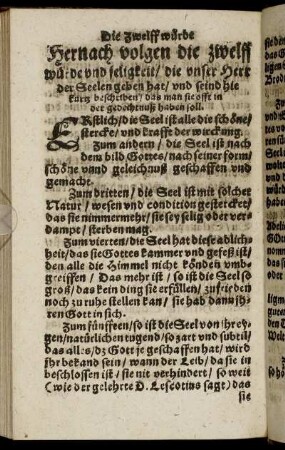 Die zwelff würde
Hernach volgen die zwelff
würde vnd seligkeit / die vnser Herr
der Seelen geben hat / vnd seind hie
kurtz beschriben / das man sie offt in
der gedechtnuß haben soll.
ERstlich / die Seel ist alle die schöne /
stercke / vnd krafft der wirckung.
Zum andern / die Seel ist nach
dem bild Gottes / nach seiner form /
schöne vnnd geleichnuß geschaffen vnd
gemacht.
Zum dritten / die Seel ist mit solcher
Natur / wesen vnd condition gestercket /
das sie nimmermehr / sie sey selig oder ver-
dampt / sterben mag.
Zum vierten / die Seel hat diese ablich-
heit / das sie Gottes kammer vnd gefeß ist /
den alle die Himmel nicht könden vmb-
greiffen / Das mehr ist / so ist die Seel so
groß / das kein ding sie erfüllen / zufrieden
noch zu ruhe stellen kan / sie hab dann ih-
ren Gott in sich.
Zum fünfften / so ist die Seel von ihr ey-
gen / natürlichen tugend / so zart vnd subtil /
das alles / dz Gott je geschaffen hat / wird
ihr bekand sein / wann der Leib / da sie in
beschlossen ist / sie nit verhindert / so weit
(wie der gelehrte D. Lescotius sagt) das
sie